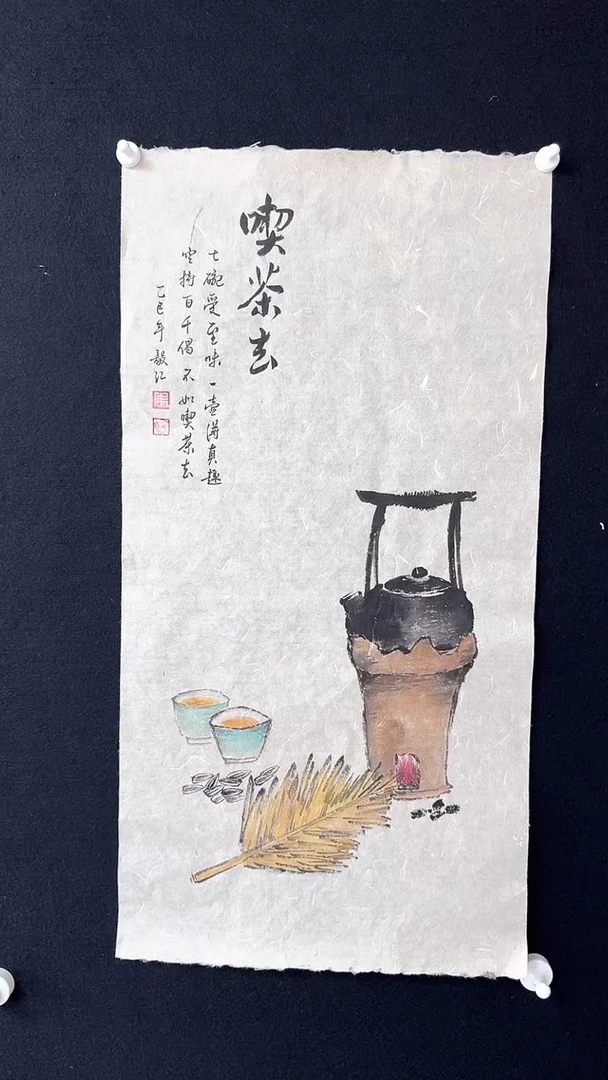 喫茶去
七碗受至味一壺得真趣
空持百千偈不如喫茶去
乙巳年毅江